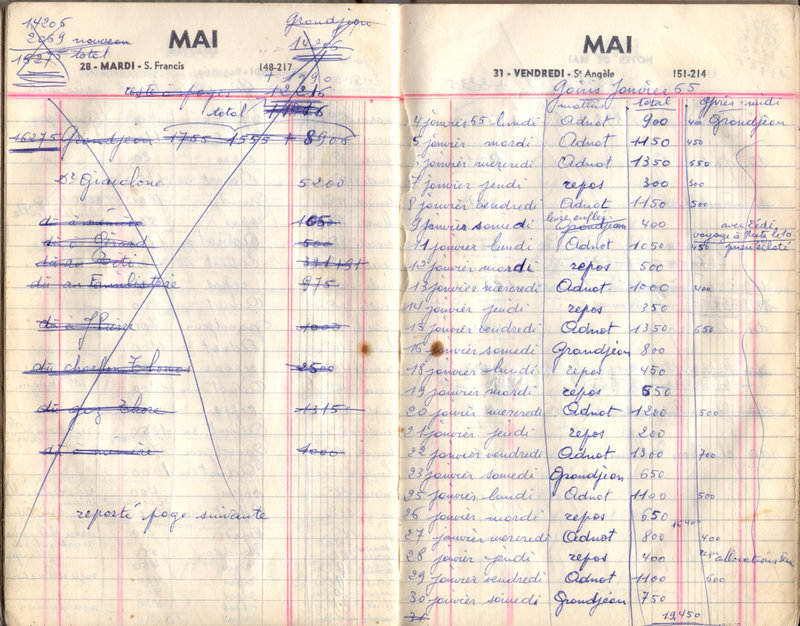 14206
2069 nouveau
16275 total
Grandjean
14206
MAI
28 - MARDI - S. Francis 148-217
+ 1990
reste à payer 12216
total
16275 Grandjean 1755 1555 + 8906
Dr Giacalone 5200
dû à mémère 1650
dû à Gérard 500
dû au Porti 331+191
dû au Familistère 975
dû à J Pierre 1000
dû charbon Thomas 2500
dû gaz Thore 1315
dû à mémère 1000
reporté page suivante
MAI
31 - VENDREDI - Ste Angèle 151-214
Gains Janvier 65
matin total après-midi
4 janvier 65 lundi Adnot 900 400 Grandjean
5 janvier mardi Adnot 1150 450
janvier mercredi Adnot 1350 550
7 janvier jeudi repos 300 300
8 janvier vendredi Adnot 1150 500
9 janvier samedi Grandjean 400 avec Dédé
voyage à
11 janvier lundi Adnot 1050 450 pneu éclaté
12 janvier mardi repos 500
13 janvier mercredi Adnot 1000 400
14 janvier jeudi repos 350
15 janvier vendredi Adnot 1350 550
16 janvier samedi Grandjean 800
18 janvier lundi repos 450
19 janvier mardi repos 550
20 janvier mercredi Adnot 1200 500
21 janvier jeudi repos 200
22 janvier vendredi Adnot 1300 700
23 janvier samedi Grandjean 650
25 janvier lundi Adnot 1100 500
26 janvier mardi repos 650
16400
27 janvier mercredi Adnot 800 400
28 janvier jeudi repos 400 reçu allocations
29 janvier vendredi Adnot 1100 600
30 janvier samedi Grandjean 750
31 19,450